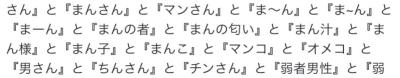 さん』と『まんさん』と『マンさん』と『ま〜ん』と『ま~ん』と
『まーん』と『まんの者』と『まんの匂い』と『まん汁』と『ま
ん様』と『まん子』と『まんこ』と『マンコ』と『オメコ』と
『男さん』と『ちんさん』と『チンさん』と『弱者男性』と『弱